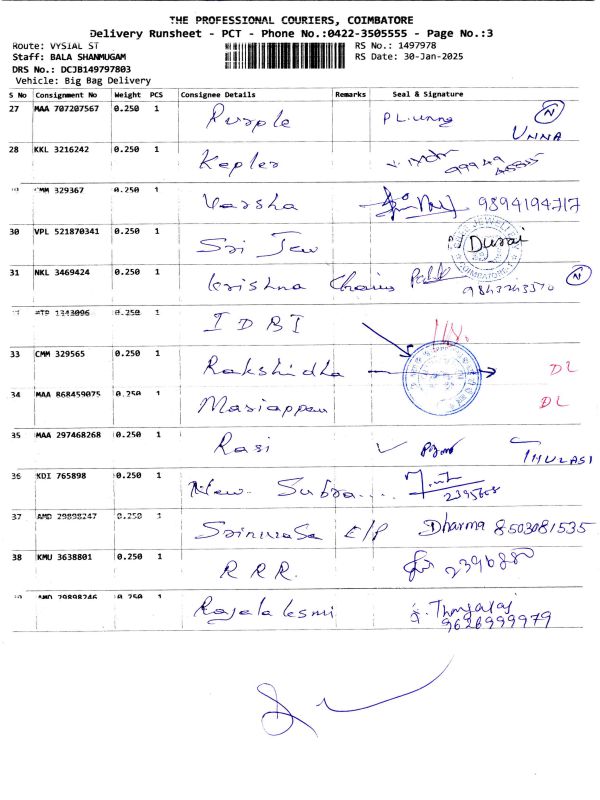 THE PROFESSIONAL COURIERS, COIMBATORE
Delivery Runsheet - PCT - Phone No.:0422-3505555 - Page No.:3
Route: VYSIAL ST RS No.: 1497978
Staff: BALA SHANMUGAM RS Date: 30-Jan-2025
DRS No.: DCJB149797803
Vehicle: Big Bag Delivery
S No Consignment No Weight PCS Consignee Details Remarks Seal & Signature
27 MAA 707207567 0.250 1 Purple N
UNNA
28 KKL 3216242 0.250 1 Kepler
CMM 329367 0.250 1 Varsha 9894194717
30 VPL 521870341 0.250 1 Sri Jew Durai
COIMBATORE
31 NKL 3469424 0.250 1 Krishna Chains N
1343096 0.250 1 IDBI
33 CMM 329565 0.250 1 Rakshidha DL
34 MAA 868459075 0.250 1 Mariappan DL
35 MAA 297468268 0.250 1 Rasi THULASI
36 KDI 765898 0.250 1 New Subra.... 2395608
37 AMD 29898247 0.250 1 Srinivasa E/P Dharma 8503081535
38 KMU 3638801 0.250 1 RRR. 2396880
AMD 29898246 0.250 1 Rajalaksmi
9626999979